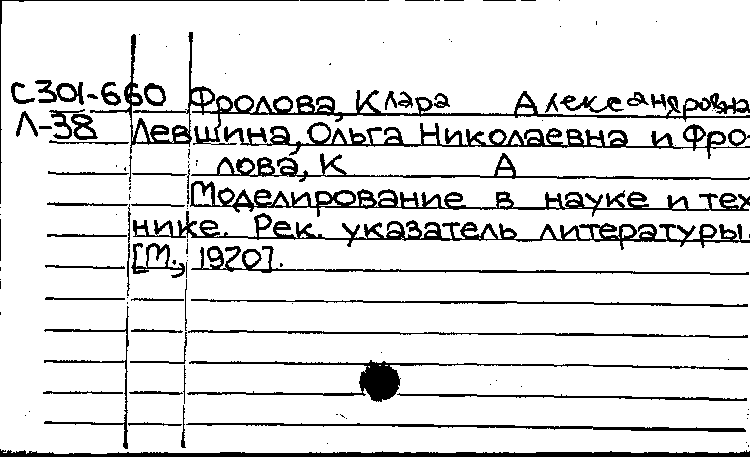 С301-660 Фролова, Клара Александровна
Л-38 Левшина, Ольга Николаевна и Фро-
лова, К А
Моделирование в науке и тех
нике. Рек. указатель литературы.
[М., 1970].